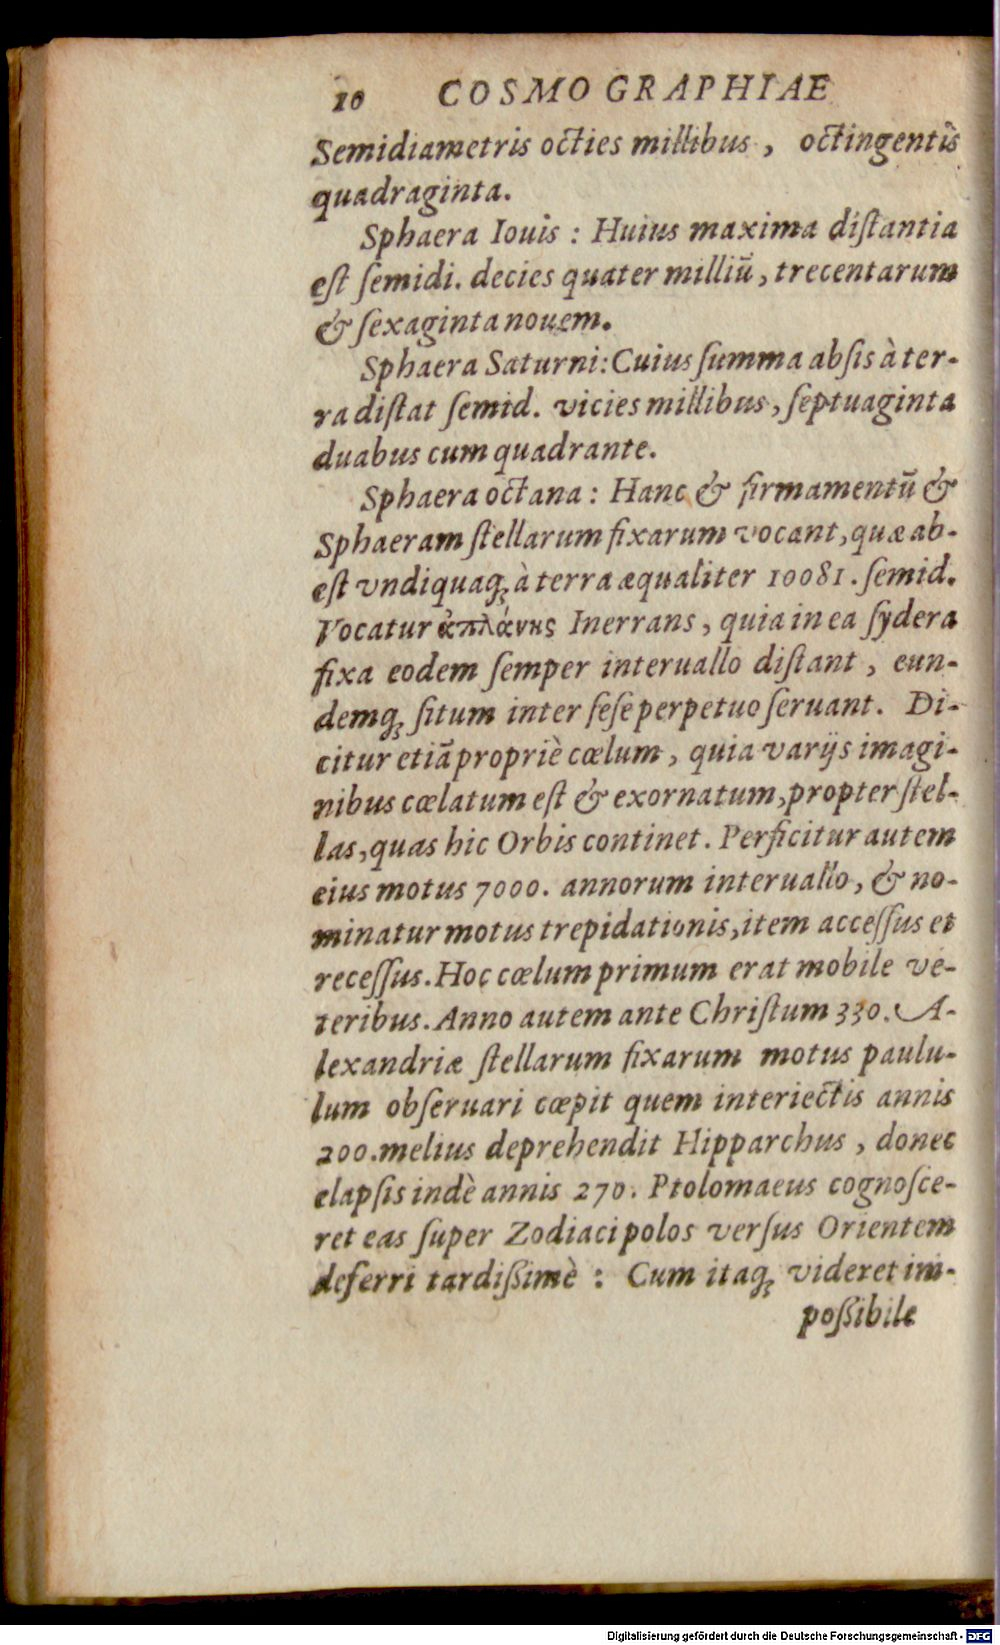 10 COSMOGRAPHIAE
Semidiametris octies millibus, octingentis
quadraginta.
Sphaera Iouis: Huius maxima diſtantia
eſt ſemidi. decies quater milliū, trecentarum
& ſexaginta nouem.
Sphaera Saturni: Cuius ſumma abſis à ter-
ra diſtat ſemid. vicies millibus, ſeptuaginta
duabus cum quadrante.
Sphaera octana: Hanc & firmamentū &
Sphaeram ſtellarum fixarum vocant, quæ ab-
eſt vndiquaq; à terra æqualiter 10081. ſemid.
Vocatur ἀπλάνης Inerrans, quia in ea ſydera
fixa eodem ſemper interuallo diſtant, eun-
demq; ſitum inter ſeſe perpetuo ſeruant. Di-
citur etiā propriè cœlum, quia varijs imagi-
nibus cœlatum eſt & exornatum, propter ſtel-
las, quas hic Orbis continet. Perficitur autem
eius motus 7000. annorum interuallo, & no-
minatur motus trepidationis, item acceſſus et
receſſus. Hoc cœlum primum erat mobile ve-
teribus. Anno autem ante Chriſtum 330. A-
lexandriæ ſtellarum fixarum motus paulu-
lum obſeruari cœpit quem interiectis annis
200. melius deprehendit Hipparchus, donec
elapſis indè annis 270. Ptolomaeus cognoſce-
ret eas ſuper Zodiaci polos verſus Orientem
deferri tardißimè: Cum itaq; videret im-
poßibile
Digitalisierung gefördert durch die Deutsche Forschungsgemeinschaft - DFG